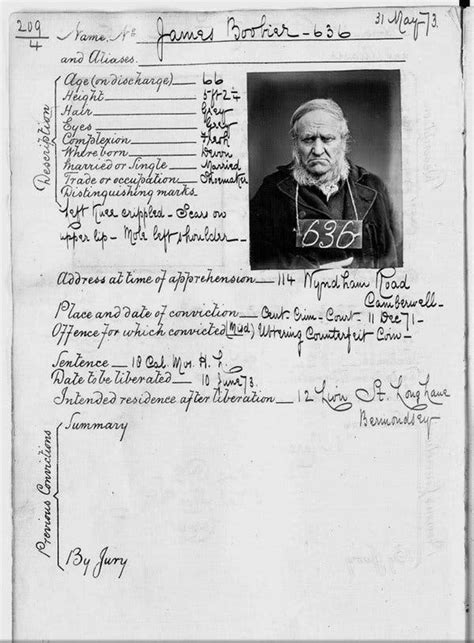 209
4
31 May 73
Name, No James Boobier - 636
and Aliases.
Description
Age (on discharge) 66
Height 5ft 2¼
Hair Grey
Eyes Grey
Complexion Fresh
Where born Devon
Married or Single Married
Trade or occupation Shoemaker
Distinguishing marks.
Left Knee crippled - Scars on
upper lip - Mole left shoulder -
636
Address at time of apprehension 114 Wyndham Road
Camberwell -
Place and date of conviction Cent. Crim - Court. 11 Dec 71 -
Offence for which convicted (Misd) Uttering Counterfeit Coin -
Sentence 18 Cal. Mos. H. L.
Date to be liberated 10 June 73.
Intended residence after liberation 12 Lion St. Long Lane
Bermondsey
Previous Convictions
Summary
By Jury